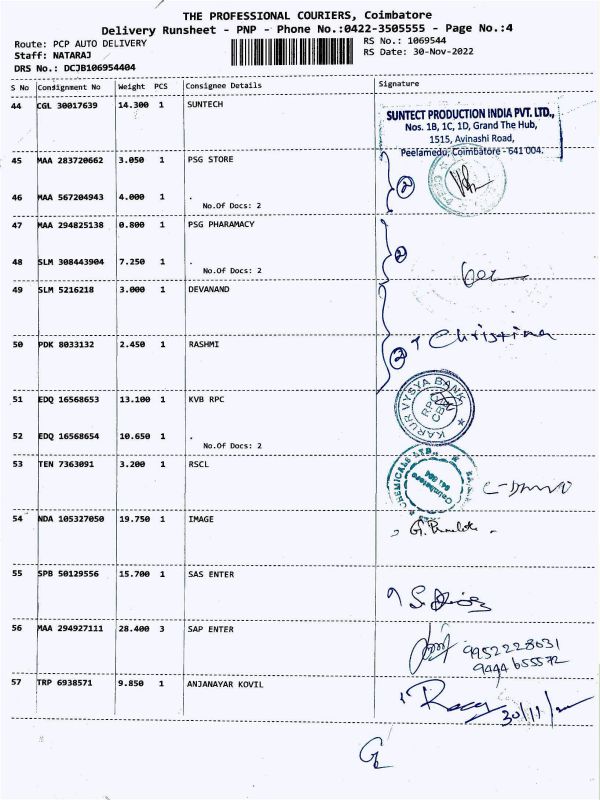 THE PROFESSIONAL COURIERS, Coimbatore
Delivery Runsheet - PNP - Phone No.:0422-3505555 - Page No.:4
Route: PCP AUTO DELIVERY
RS No.: 1069544
Staff: NATARAJ
RS Date: 30-Nov-2022
DRS No.: DCJB106954404
S No Consignment No Weight PCS Consignee Details Signature
44 CGL 30017639 14.300 1 SUNTECH
SUNTECT PRODUCTION INDIA PVT. LTD.,
Nos. 1B, 1C, 1D, Grand The Hub,
1515, Avinashi Road,
Peelamedu, Coimbatore - 641 004.
45 MAA 283720662 3.050 1 PSG STORE
2
46 MAA 567204943 4.000 1 .
No.Of Docs: 2
47 MAA 294825138 0.800 1 PSG PHARAMACY
2
48 SLM 308443904 7.250 1 .
No.Of Docs: 2
49 SLM 5216218 3.000 1 DEVANAND
50 PDK 8033132 2.450 1 RASHMI
Christina
2
51 EDQ 16568653 13.100 1 KVB RPC
KARUR VYSYA BANK
RPC
52 EDQ 16568654 10.650 1 .
No.Of Docs: 2
53 TEN 7363091 3.200 1 RSCL
CHEMICALS LTD.,
Coimbatore
641 004
54 NDA 105327050 19.750 1 IMAGE
55 SPB 50129556 15.700 1 SAS ENTER
56 MAA 294927111 28.400 3 SAP ENTER
9952228631
9444655572
57 TRP 6938571 9.850 1 ANJANAYAR KOVIL
30/11/